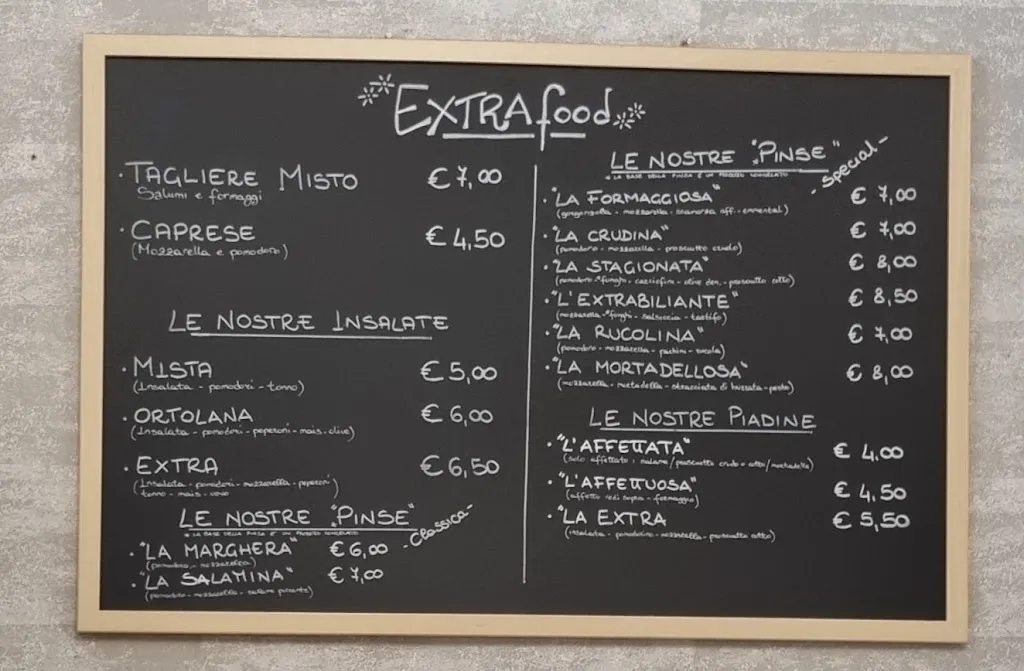 EXTRAfood
· TAGLIERE MISTO € 7,00
Salumi e formaggi
· CAPRESE € 4,50
(Mozzarella e pomodoro)
LE NOSTRE INSALATE
· MISTA € 5,00
(Insalata - pomodori - tonno)
· ORTOLANA € 6,00
(Insalata - pomodori - peperoni - mais - olive)
· EXTRA € 6,50
(Insalata - pomodori - mozzarella - peperoni
tonno - mais - uovo)
LE NOSTRE *PINSE" - Classica -
* LA BASE DELLA PINSA È UN PRODOTTO CONGELATO
· "LA MARGHERA" € 6,00
(pomodoro - mozzarella)
· "LA SALAMINA" € 7,00
(pomodoro - mozzarella - salame piccante)
LE NOSTRE *PINSE" - Special -
* LA BASE DELLA PINSA È UN PRODOTTO CONGELATO
· "LA FORMAGGIOSA" € 7,00
(gorgonzola - mozzarella - scamorza aff. - emmental)
· "LA CRUDINA" € 7,00
(pomodoro - mozzarella - prosciutto crudo)
· "LA STAGIONATA" € 8,00
(pomodoro - *funghi - carciofini - olive den. - prosciutto cotto)
· "L'EXTRABILIANTE" € 8,50
(mozzarella - *funghi - salsiccia - tartufo)
· "LA RUCOLINA" € 7,00
(pomodoro - mozzarella - pachini - rucola)
· "LA MORTADELLOSA" € 8,00
(mozzarella - mortadella - stracciata di burrata - pesto)
LE NOSTRE PIADINE
· "L'AFFETTATA" € 4,00
(solo affettato: salame/prosciutto crudo o cotto/mortadella)
· "L'AFFETTUOSA" € 4,50
(affetto vedi sopra - formaggio)
· "LA EXTRA € 5,50
(insalata - pomodorino - mozzarella - prosciutto cotto)